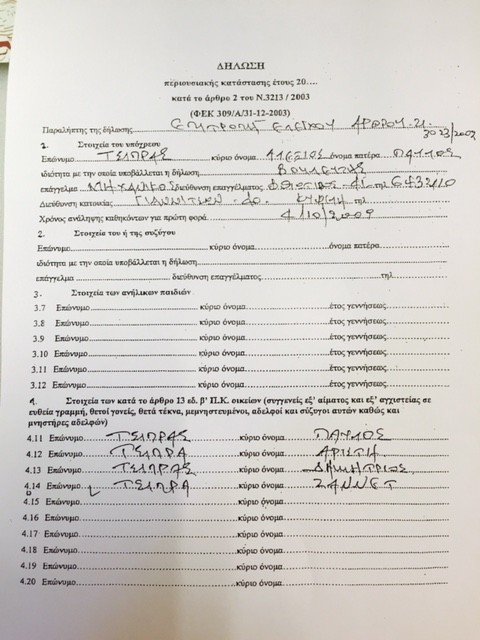 ΔΗΛΩΣΗ
περιουσιακής κατάστασης έτους 20....
κατά το άρθρο 2 του Ν.3213 / 2003
(ΦΕΚ 309/Α/31-12-2003)
Παραλήπτης της δήλωσης ΕΠΙΤΡΟΠΗ ΕΛΕΓΧΟΥ ΑΡΘΡΟΥ 21
3023/2002
1. Στοιχεία του υπόχρεου
Επώνυμο ΤΣΙΠΡΑΣ κύριο όνομα ΑΛΕΞΙΟΣ όνομα πατέρα ΠΑΥΛΟΣ
ιδιότητα με την οποία υποβάλλεται η δήλωση ΒΟΥΛΕΥΤΗΣ
επάγγελμα ΜΗΧΑΝΙΚΟΣ διεύθυνση επαγγέλματος τηλ
Διεύθυνση κατοικίας ΓΙΑΝΝΙΤΣΩΝ
Χρόνος ανάληψης καθηκόντων για πρώτη φορά 4/10/2009
2. Στοιχεία του ή της συζύγου
Επώνυμο κύριο όνομα όνομα πατέρα
ιδιότητα με την οποία υποβάλλεται η δήλωση
επάγγελμα διεύθυνση επαγγέλματος τηλ
3. Στοιχεία των ανήλικων παιδιών
3.7 Επώνυμο κύριο όνομα έτος γεννήσεως
3.8 Επώνυμο κύριο όνομα έτος γεννήσεως
3.9 Επώνυμο κύριο όνομα έτος γεννήσεως
3.10 Επώνυμο κύριο όνομα έτος γεννήσεως
3.11 Επώνυμο κύριο όνομα έτος γεννήσεως
3.12 Επώνυμο κύριο όνομα έτος γεννήσεως
4. Στοιχεία των κατά το άρθρο 13 εδ. β' Π.Κ. οικείων (συγγενείς εξ' αίματος και εξ' αγχιστείας σε
ευθεία γραμμή, θετοί γονείς, θετά τέκνα, μεμνηστευμένοι, αδελφοί και σύζυγοι αυτών καθώς και
μνηστήρες αδελφών)
4.11 Επώνυμο ΤΣΙΠΡΑΣ κύριο όνομα ΠΑΥΛΟΣ
4.12 Επώνυμο ΤΣΙΠΡΑ κύριο όνομα ΑΡΙΣΤΗ
4.13 Επώνυμο ΤΣΙΠΡΑΣ κύριο όνομα ΔΗΜΗΤΡΙΟΣ
4.14 Επώνυμο ΤΣΙΠΡΑ κύριο όνομα ΖΑΝΝΕΤ
4.15 Επώνυμο κύριο όνομα
4.16 Επώνυμο κύριο όνομα
4.17 Επώνυμο κύριο όνομα
4.18 Επώνυμο κύριο όνομα
4.19 Επώνυμο κύριο όνομα
4.20 Επώνυμο κύριο όνομα